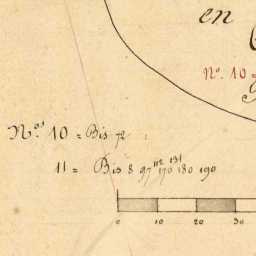 en
N.º 10 =
N.os 10 = Bis 72
11 = Bis 8 97 112 170 131 180 190
0 10 20 30